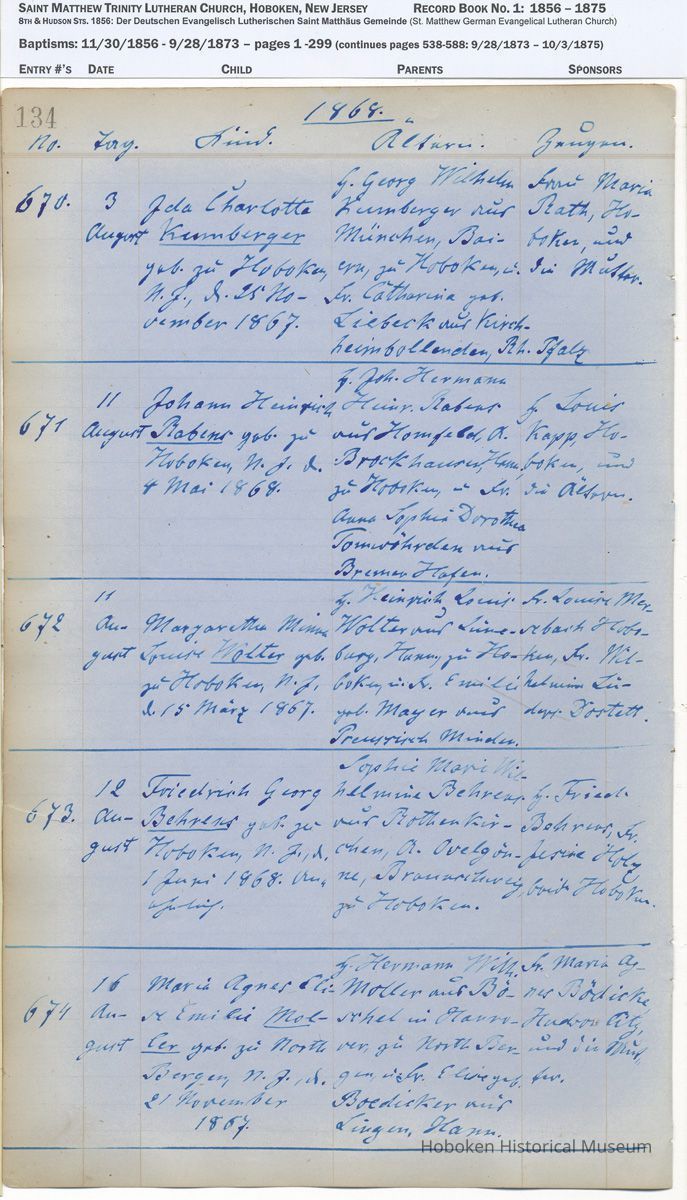 SAINT MATTHEW TRINITY LUTHERAN CHURCH, HOBOKEN, NEW JERSEY RECORD BOOK NO. 1: 1856 – 1875
8TH & HUDSON STS. 1856: Der Deutschen Evangelisch Lutherischen Saint Matthäus Gemeinde (St. Matthew German Evangelical Lutheran Church)
Baptisms: 11/30/1856 - 9/28/1873 – pages 1 -299 (continues pages 538-588: 9/28/1873 – 10/3/1875)
ENTRY #'S DATE CHILD PARENTS SPONSORS
134 1868.
No. Tag. Kind. Ältern. Zeugen.
670.
3
August
Ida Charlotte
Kumberger
geb. zu Hoboken,
N. J., d. 25 No-
vember 1867.
H. Georg Wilhelm
Kumberger aus
München, Bai-
ern, zu Hoboken, u.
Fr. Catharina geb.
Liebeck aus Kirch-
heimbollenden, Rh. Pfalz
Frau Maria
Rath, Ho-
boken, und
die Mutter.
671
11
August
Johann Heinrich
Rabens geb. zu
Hoboken, N. J. d.
4 Mai 1868.
H. Joh. Hermann
Heinr. Rabens
aus Homfeld, A.
Brockhausen, Hann,
zu Hoboken, u Fr.
Anna Sophie Dorothea
Tomwöhrden aus
Bremer Hafen.
H. Louis
Kapp, Ho-
boken, und
die Ältern.
672
11
Au-
gust
Margaretha Minna
Louise Wolter geb.
zu Hoboken, N. J.
d. 15 März 1867.
H. Heinrich Louis
Wolter aus Lüne-
burg, Hann, zu Ho-
boken, u. Fr. Emilie
geb. Mayer aus
Preussisch Minden.
Fr. Louise Mer-
sebach Hobo-
ken, Fr. Wil-
helmine Lü-
ders. Dostett.
673.
12
Au-
gust
Friedrich Georg
Behrens geb. zu
Hoboken, N. J., d.
1 Juni 1868. Un-
ehelich.
Sophie Marie Wil-
helmine Behrens
aus Rothenkir-
chen, A. Ovelgön-
ne, Braunschweig
zu Hoboken.
H. Friedr.
Behrens, Fr.
Gesine Holz
beide Hoboken.
674
16
Au-
gust
Maria Agnes Eli-
se Emilie Mol-
ler geb. zu North
Bergen, N. J., d.
21 November
1867.
H. Hermann Wilh.
Moller aus Bö-
schel in Hanno-
ver, zu North Ber-
gen, u. Fr. Elise geb.
Boedicker aus
Lingen, Hann.
Fr. Maria Ag-
nes Bödicke,
Hudson City,
und die Mut-
ter.
Hoboken Historical Museum